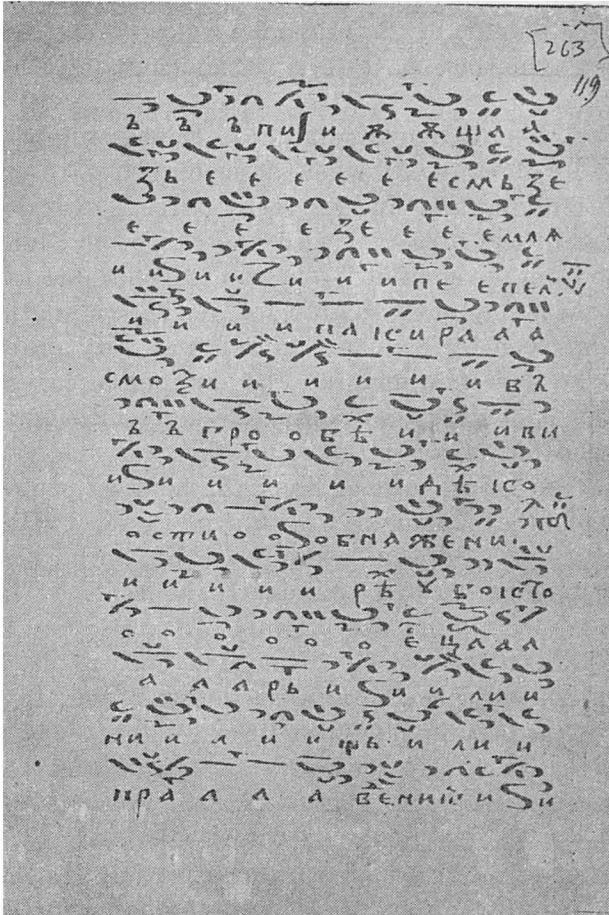 [263]
119
ъ ъ ъ пи и ѫ ѫща а
ѕь е е е е е е смь ѕе
е е е е ѕе е е емлѧ
и и и и и и и пе епел
и и и и па ісира а а
смоѕи и и и и и въ
ъ ъ гро о бѣ и и и ви
и и и и и и и дѣ ісо
о сти о о о бнаженн
и и и и и рѣ ѹ боісто
о о о о о о е цлаа
а а арь и и и ли и
ни и л и и шь и ли и
пра а а а вении и и